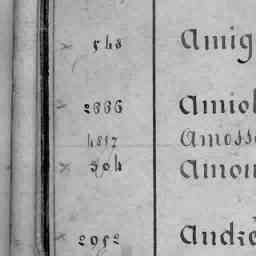 548 Amig
2886 Amiol
4817 Amoss
504 Amou
2052 André